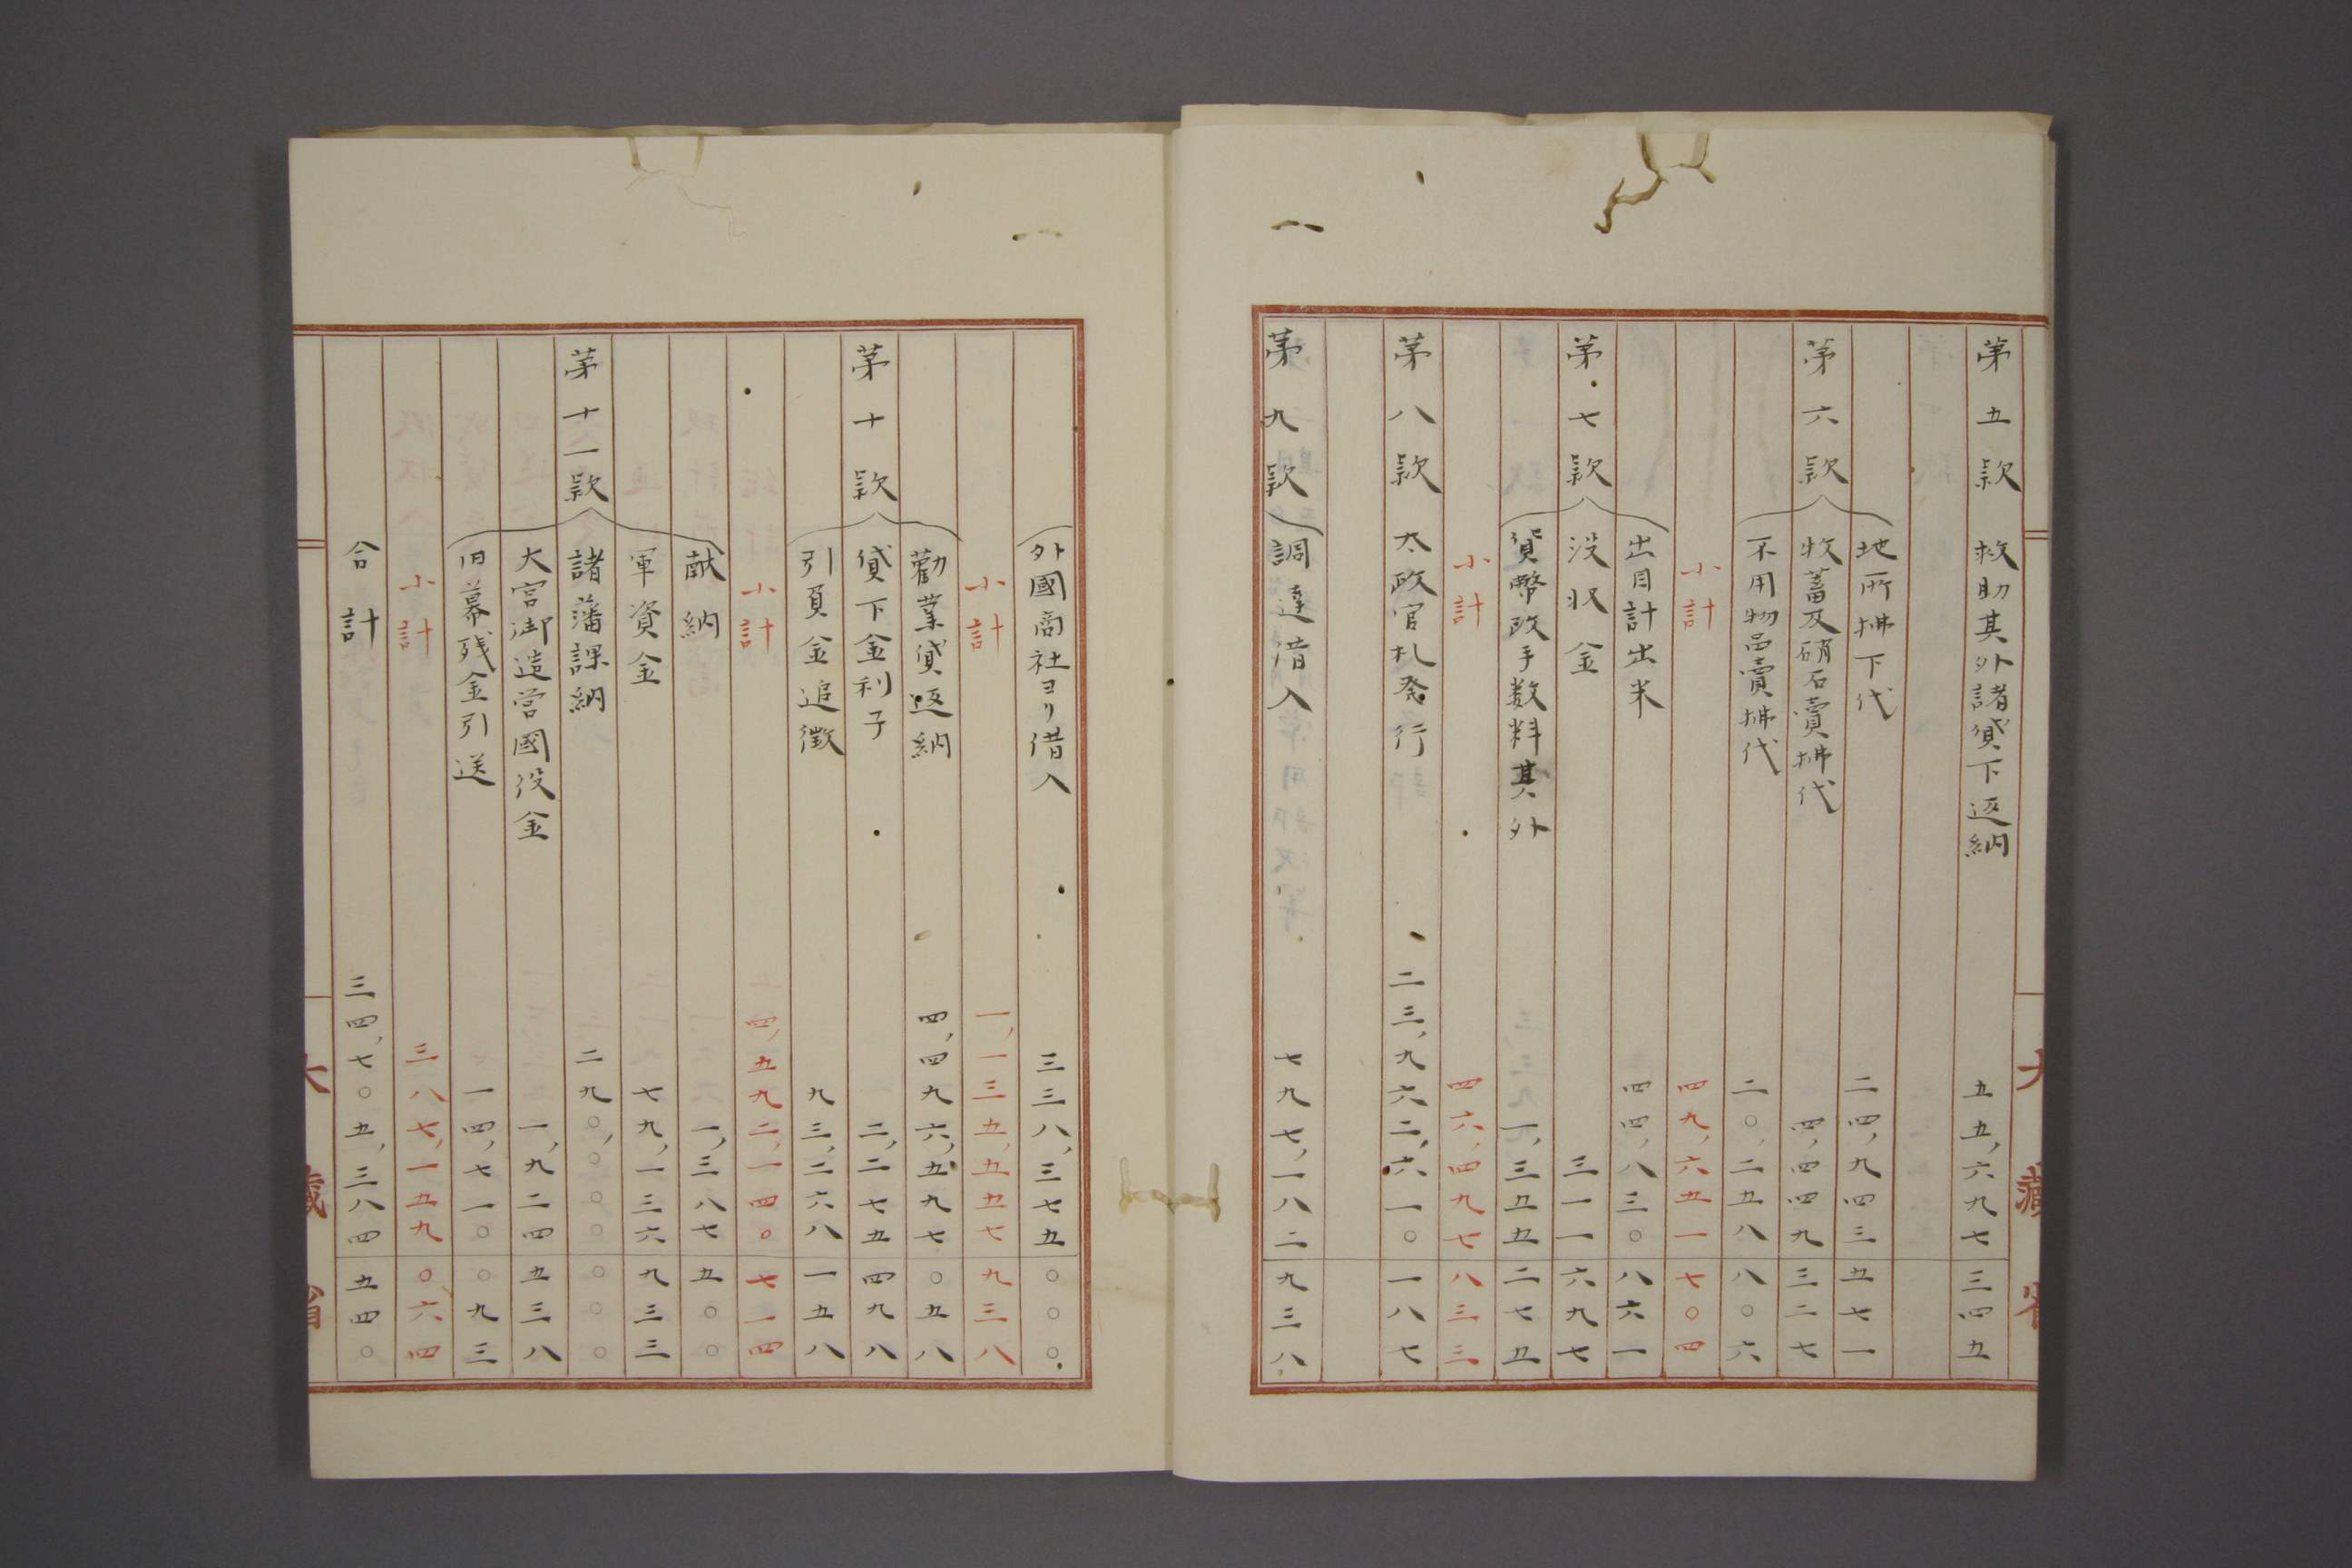 第五款 救助其外諸貸下返納 五五,六九七 三四五
地所拂下代 二四,九四三 五七一
第六款 牧蓄及硝石賣拂代 四,四四九 三二七
不用物品賣拂代 二〇,二五八 八〇六
小計 四九,六五一 七〇四
出目計出米 四四,八三〇 八六一
第七款 没収金 三一一 六九七
貨幣改手数料其外 一,三五五 二七五
小計 四六,四九七 八三三
第八款 太政官札発行 二三,九六二,六一〇 一八七
第九款 調達借入 七九七,一八二 九三八
大藏省
外國商社ヨリ借入 三三八,三七五 〇〇〇
小計 一,一三五,五五七 九三八
勸業貸返納 四,四九六,五九七 〇五八
第十款 貸下金利子 二,二七五 四九八
引負金追徴 九三,二六八 一五八
小計 四,五九二,一四〇 七一四
献納 一,三八七 五〇〇
軍資金 七九,一三六 九三三
第十一款 諸藩課納 二九〇,〇〇〇 〇〇〇
大宮御造営國役金 一,九二四 五三八
旧幕残金引送 一四,七一〇 〇九三
小計 三八七,一五九 〇六四
合計 三四,七〇五,三八四 五四〇
大藏省